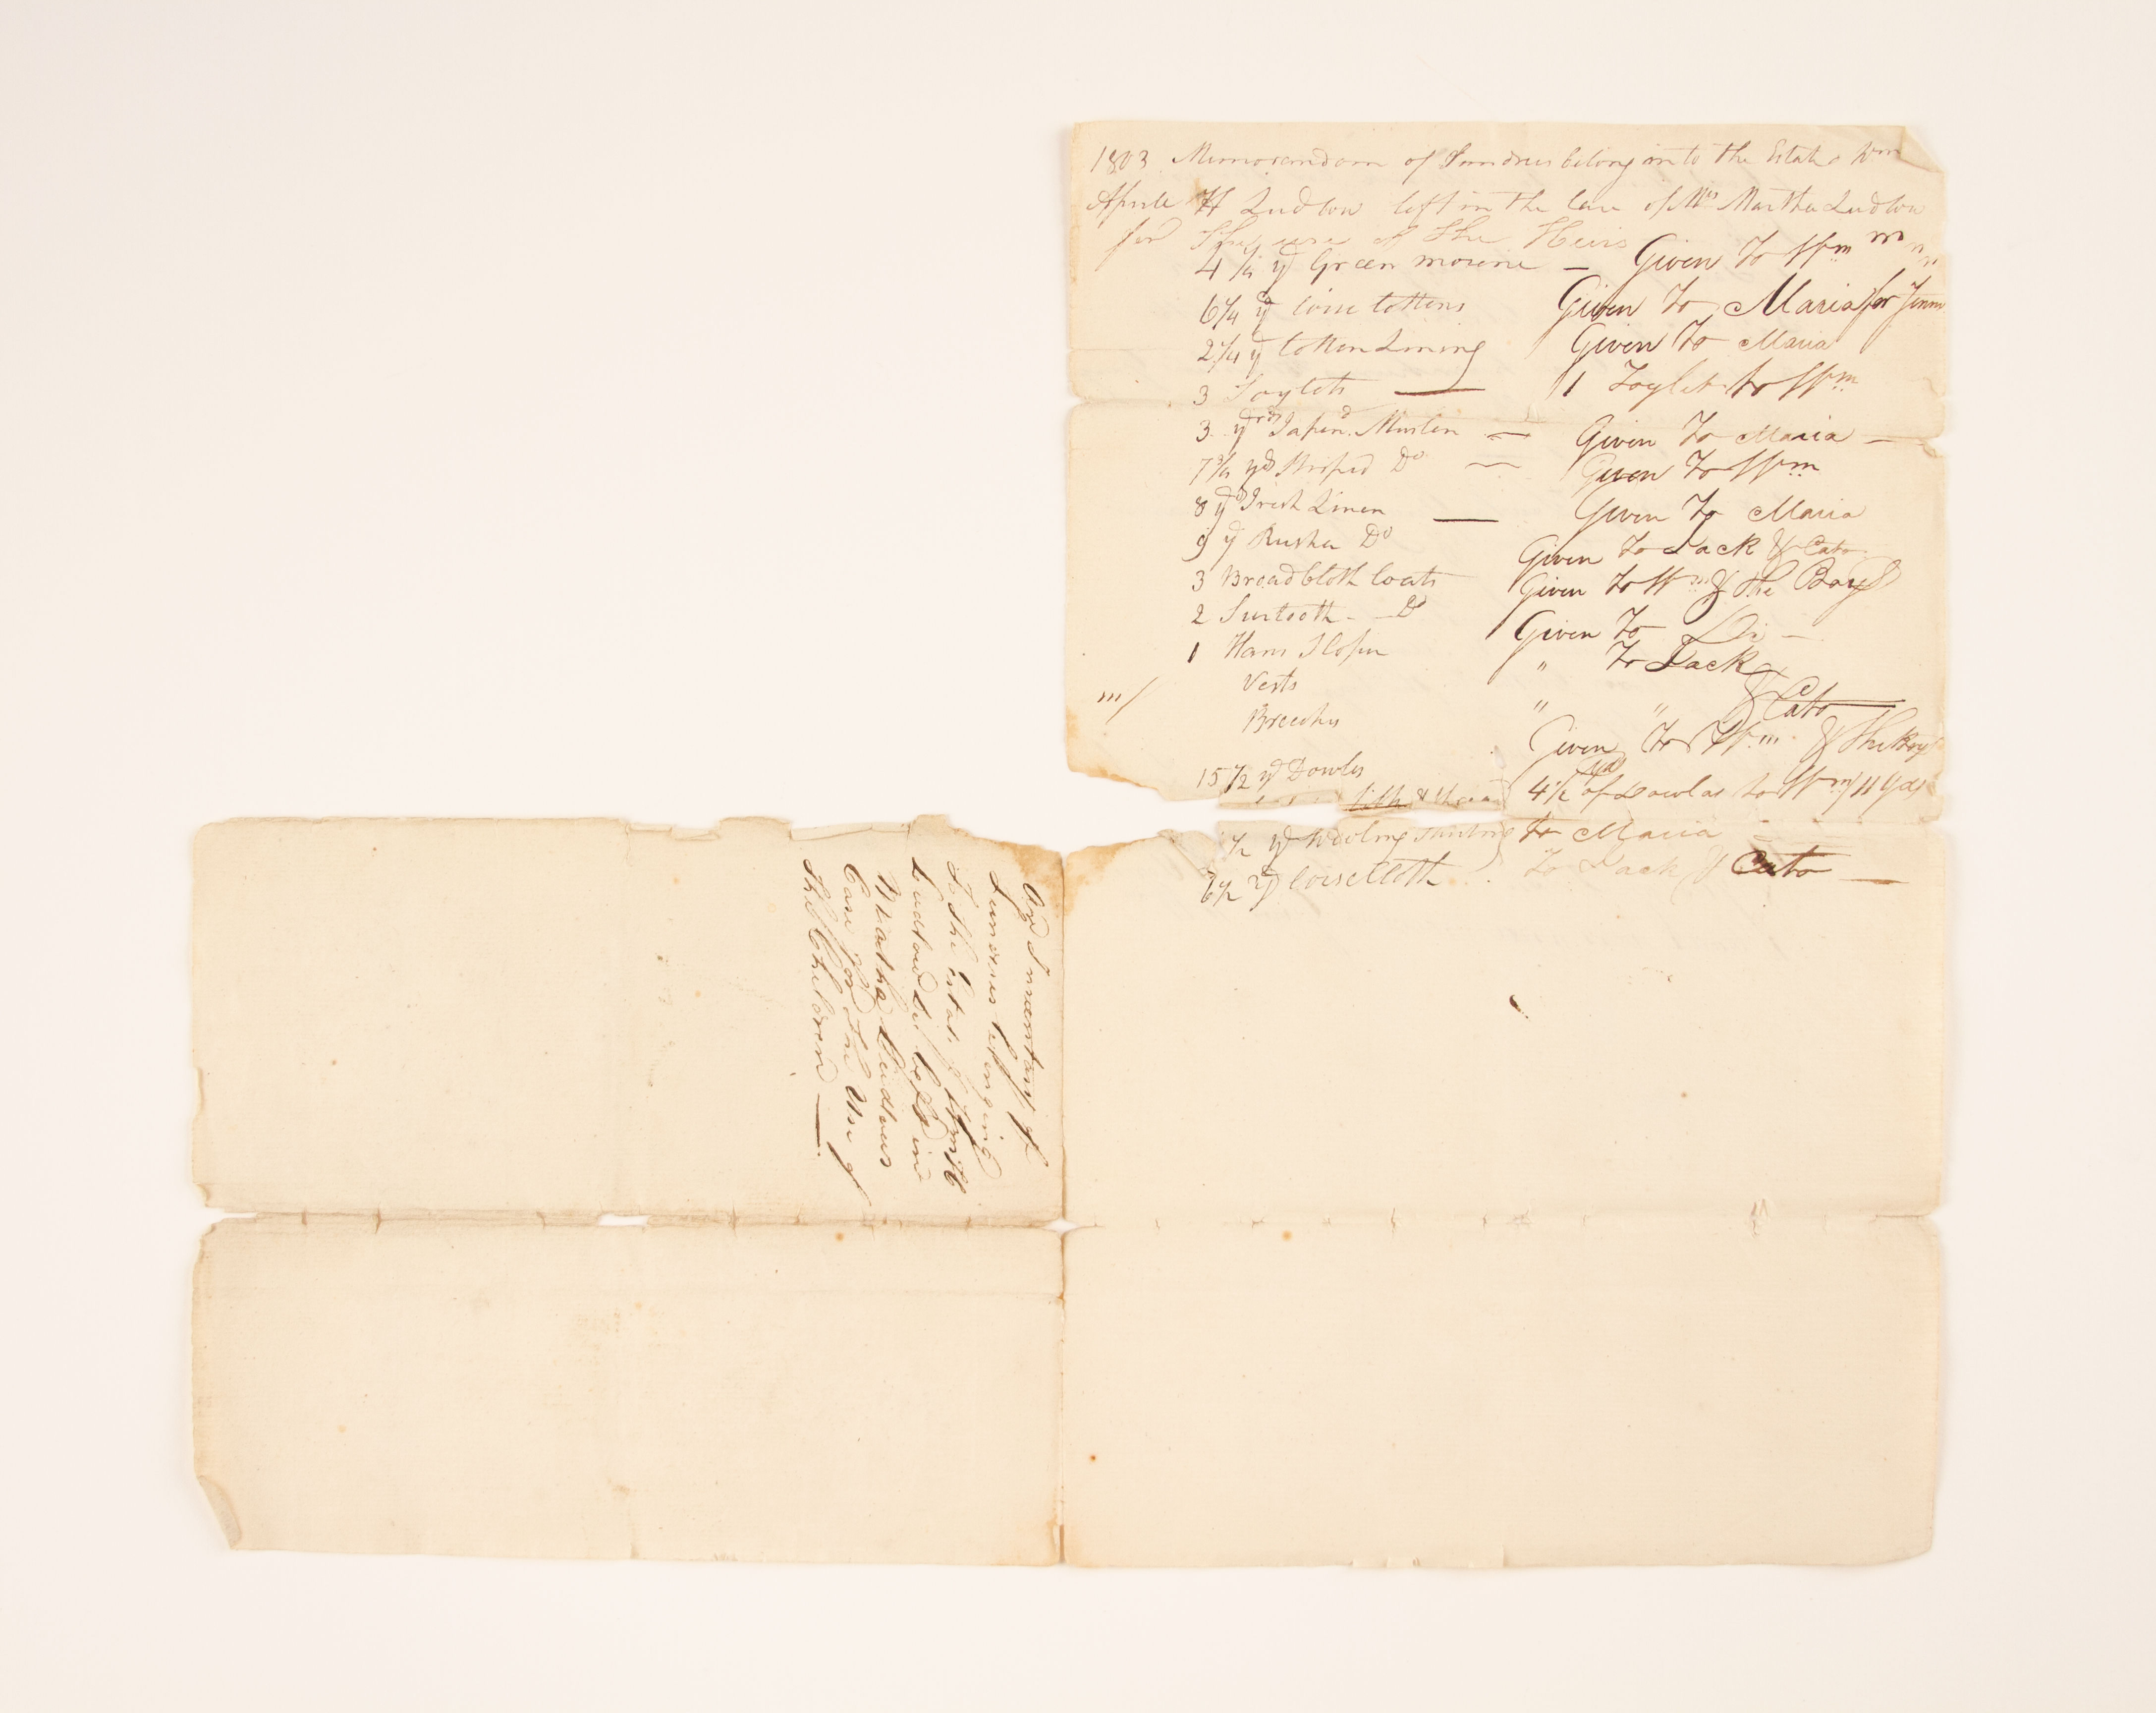 1803 Memorandom of Sundries belong in to the Estate Wm
Aprile H Ludlow left in the Care of Mrs Martha Ludlow
for The use of the Heirs
4 1/4 yd Green morine — Given To Wm
6 1/4 yd Corse Cottons Given To Maria for
2 1/4 yd Cotten Lining Given To Maria
3 Toylets — 1 Toylet to Wm
3 yrds Muslin — Given To Maria —
7 3/4 yds Striped Do — Given To Wm
8 yd Irish Linen — Given To Maria
9 yd Rusha Do Given To Jack & Cato
3 Broad Cloth Coats Given to Wm & the Boys
2 Surtooth — Do Given To —
1 " To Jack
Vests " " & Cato
Breeches Given To Wm & the Boy
15 1/2 yd Dowlas 4 1/2 yds of Dowlas to Wm 11 yds
& thread
1/2 yd Wooling to Maria
6 1/2 yd Corse Cloth To Jack & Cato —
An Inventary of
Sundries belonging
To the Estate of Wm H
Ludlow left in
Martha Ludlows
Care for the Use of
The Children —